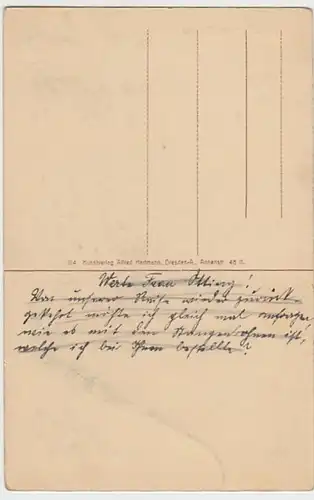 104 Kunstverlag Alfred Hartmann, Dresden-A., Annenstr. 48 G.
Werte Frau Otting!
Von unserer Reise wieder zurück-
gekehrt möchte ich gleich mal anfragen
wie es mit den Stangenbohnen ist,
welche ich bei Ihnen bestellte?